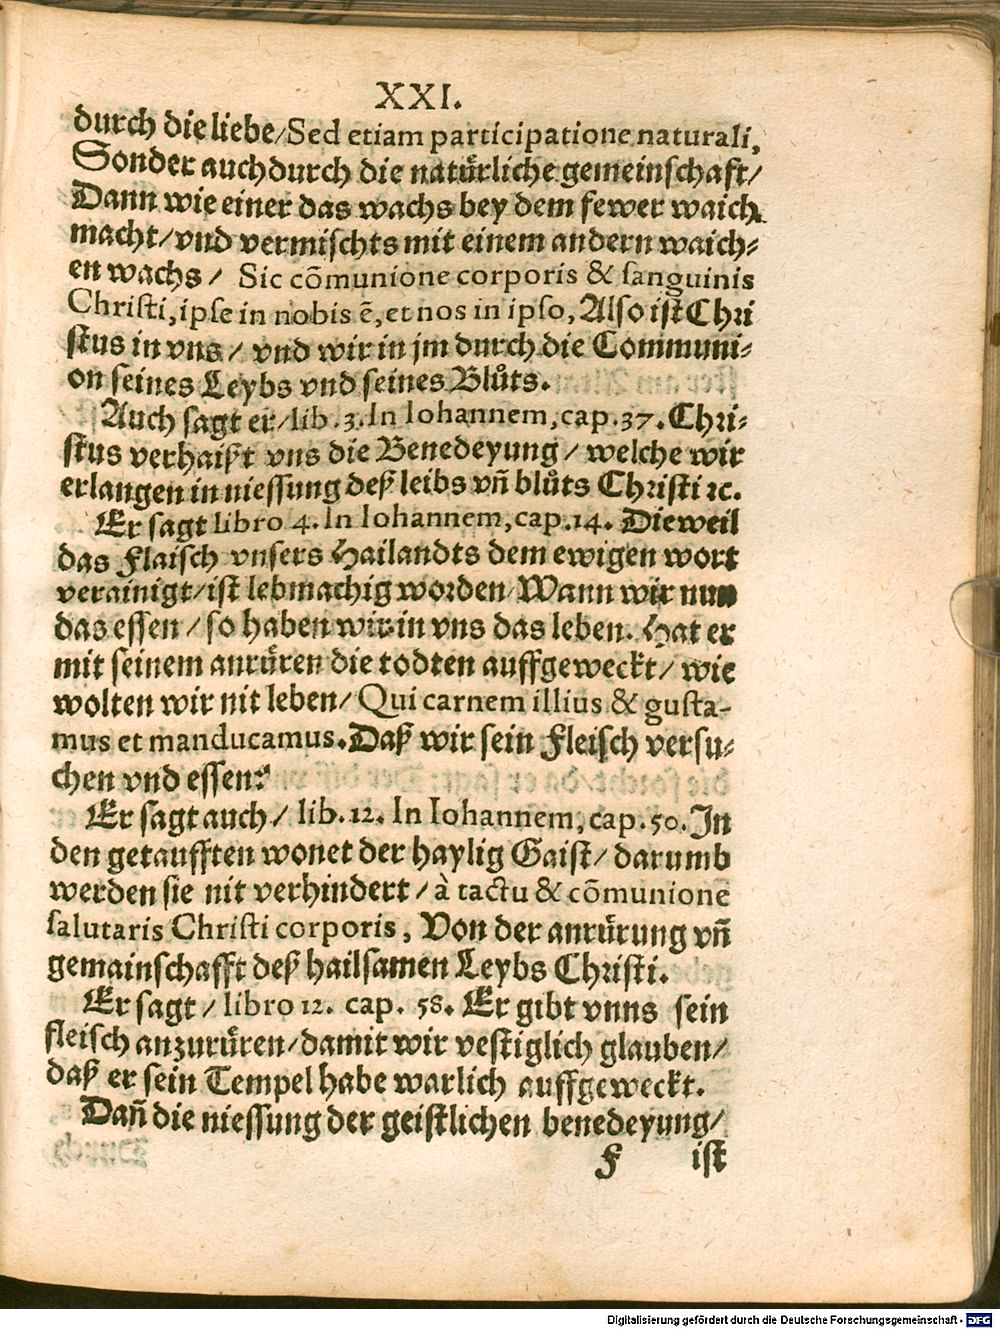 XXI.
durch die liebe/Sed etiam participatione naturali,
Sonder auch durch die natuͤrliche gemeinschaft/
Dann wie einer das wachs bey dem fewer waich
macht/vnd vermischts mit einem andern waich⸗
en wachs / Sic cõmunione corporis & sanguinis
Christi, ipse in nobis ẽ, et nos in ipso, Also ist Chri
stus in vns / vnd wir in jm durch die Communi⸗
on seines Leybs vnd seines Bluͦts.
Auch sagt er/lib.3.In Iohannem, cap.37. Chri⸗
stus verhaißt vns die Benedeyung / welche wir
erlangen in niessung deß leibs vñ bluͦts Christi ꝛc.
Er sagt libro 4. In Iohannem, cap.14. Dieweil
das Flaisch vnsers Hailandts dem ewigen wort
verainigt/ist lebmachig worden/Wann wir nun
das essen / so haben wir in vns das leben. Hat er
mit seinem anruͤren die todten auffgeweckt/ wie
wolten wir nit leben/ Qui carnem illius & gusta-
mus et manducamus. Daß wir sein Fleisch versu⸗
chen vnd essen?
Er sagt auch / lib.12. In Iohannem, cap.50. In
den getaufften wonet der haylig Gaist/ darumb
werden sie nit verhindert / à tactu & cõmunione
salutaris Christi corporis, Von der anruͤrung vñ
gemainschafft deß hailsamen Leybs Christi.
Er sagt / libro 12. cap. 58. Er gibt vnns sein
fleisch anzuruͤren/damit wir vestiglich glauben/
daß er sein Tempel habe warlich auffgeweckt.
Dañ die niessung der geistlichen benedeyung/
F ist
Digitalisierung gefördert durch die Deutsche Forschungsgemeinschaft - DFG